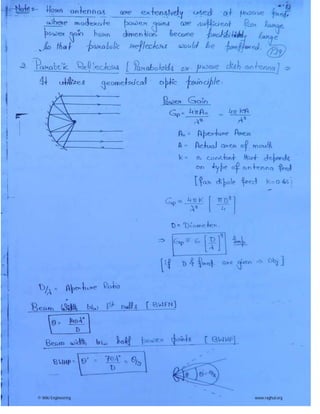 Note:- Horn antennas are extensively used at μwave freq.
where moderate power gains are sufficient For large
power gain horn dimention become prohibitively large
So that parabolic reflectors would be preffered.
2. Parabolic Reflectors [ Paraboloids or μwave dish antenna] :-
It utilizes geometrical optic principle.
Power Gain
Gp = 4πA₀/λ² = 4πKA/λ²
A₀ - Aperture Area
A - Actual area of mouth
K - a constant that depends
on type of antenna feed
[for dipole feed K=0.65]
Gp = 4πK/λ² [πD²/4]
D = Diameter
⇒ Gp = 6 [D/λ]² Imp
[if D & freq are given ⇒ Obj]
D/λ - Aperture Ratio
Beam width b/w 1st nulls [BWFN]
θ = 140λ°/D
Beam width b/w half power points [BWHP]
BWHP = θ' = 70λ°/D = θ/2
© Wiki Engineering
www.raghul.org